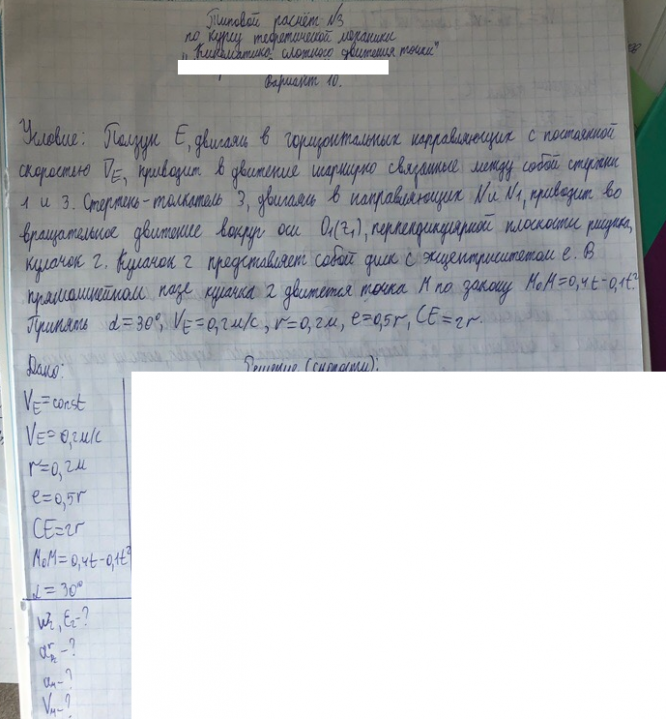 Типовой расчёт №3
по курсу теоретической механики
"Кинематика сложного движения точки"
Вариант 10.
Условие: Ползун E, двигаясь в горизонтальных направляющих с постоянной
скоростью V̅E, приводит в движение шарнирно связанные между собой стержни
1 и 3. Стержень-толкатель 3, двигаясь в направляющих N и N1, приводит во
вращательное движение вокруг оси O1(z1), перпендикулярной плоскости рисунка,
кулачок 2. Кулачок 2 представляет собой диск с эксцентриситетом e. В
прямолинейном пазе кулачка 2 движется точка M по закону M0M=0,4t-0,1t².
Принять α=30°, VE=0,2м/с, r=0,2м, e=0,5r, CE=2r.
Дано:
Решение (скорости):
VE=const
VE=0,2м/с
r=0,2м
e=0,5r
CE=2r
M0M=0,4t-0,1t²
α=30°
ω2, ε2-?
aM-?
VM-?